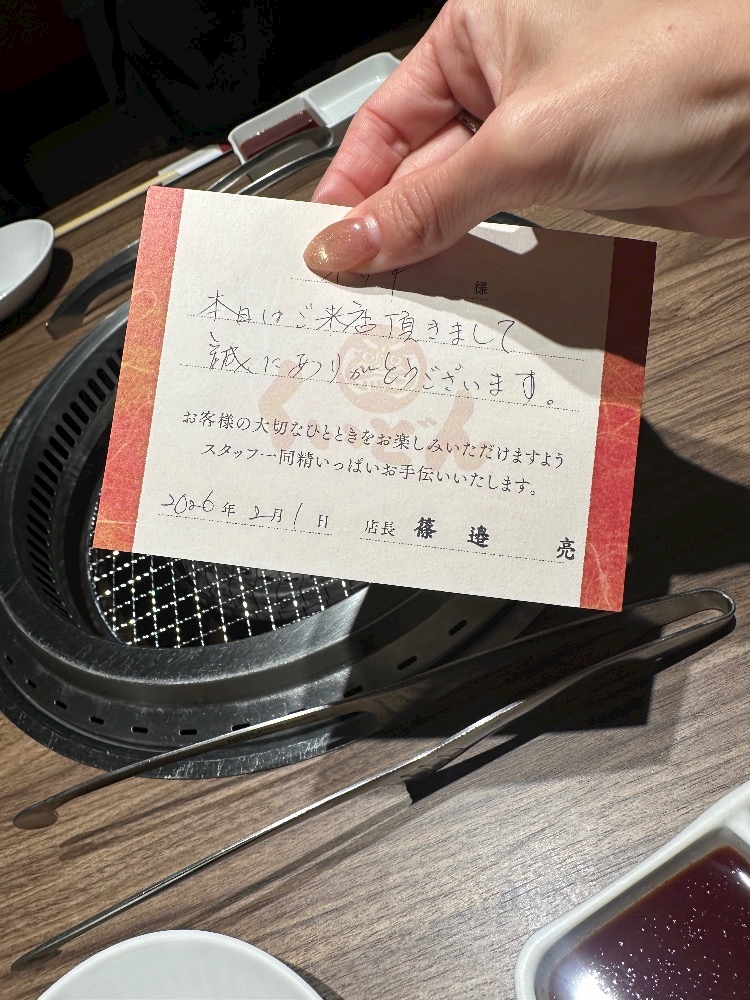 様
本日はご来店頂きまして
誠にありがとうございます。
お客様の大切なひとときをお楽しみいただけますよう
スタッフ一同精いっぱいお手伝いいたします。
2026年 2月 1日 店長 篠邉 亮